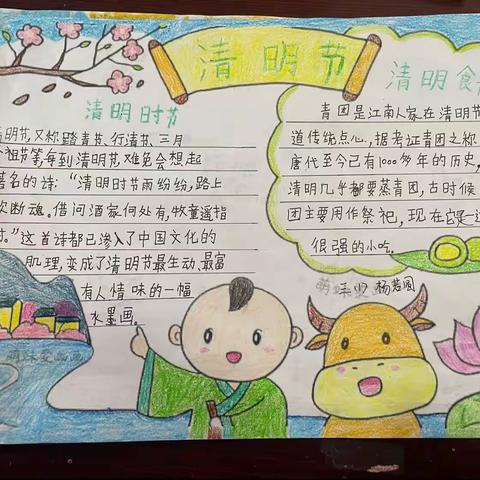 清明节
清明时节
明节,又称踏青节、行清节、三月
祖节等,每到清明节难免会想起
著名的诗:“清明时节雨纷纷,路上
欲断魂。借问酒家何处有,牧童遥指
村。”这首诗都已渗入了中国文化的
肌理,变成了清明节最生动、最富
有人情味的一幅
水墨画。
清明食
青团是江南人家在清明节
道传统点心,据考证青团之称
唐代至今已有1000多年的历史,
清明几乎都要蒸青团,古时候
团主要用作祭祀,现在它是一
很强的小吃.